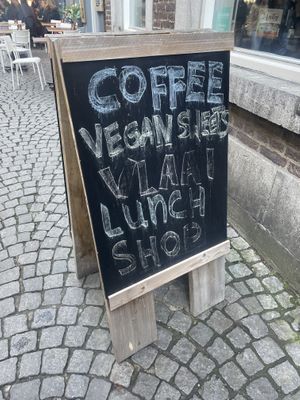 COFFEE
VEGAN SWEETS
VLAAI
LUNCH
SHOP